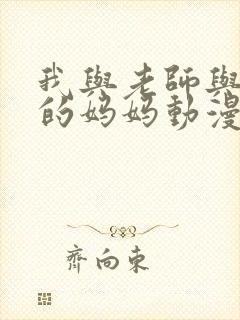 我與老師與
的媽媽動漫
齊向東